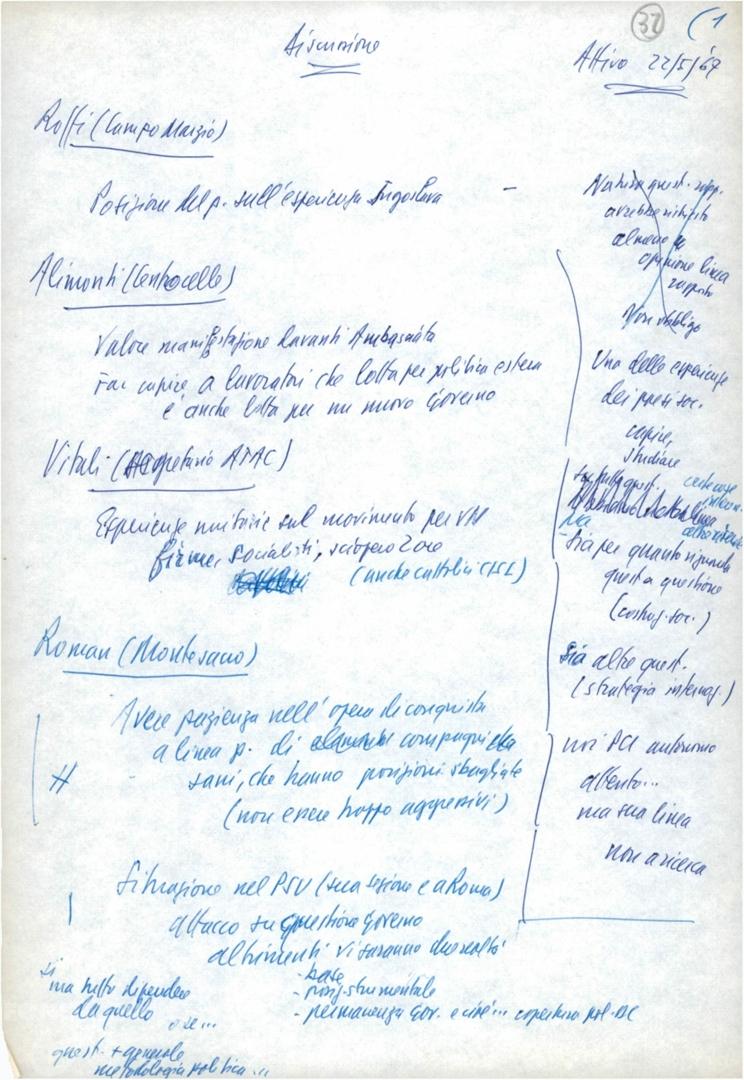 37 (1
Discussione
Attivo 22/5/67
Roffi (Campo Marzio)
Posizione del p. sull'esperienza Jugoslava -
Alimonti (Centocelle)
Valore manifestazione davanti Ambasciata
Far capire a lavoratori che lotta per politica estera
è anche lotta per un nuovo Governo
Vitali (Segretario ATAC)
Esperienze unitarie sul movimento per VN
firme, socialisti, sciopero 2 ore
(anche cattolici CISL)
Roman (Montesacro)
Avere pazienza nell'opera di conquista
a linea p. di compagni
sani, che hanno posizioni sbagliate
(non essere troppo aggressivi)
Situazione nel PSU (sua sezione e a Roma)
attacco su questione Governo
altrimenti vi saranno due realtà
- base
- posiz. strumentale
- permanenza Gov. e cioè... copertura pol. DC
si
ma tutto dipende
da quello o se...
quest. + generale
metodologia politica...
Natura quest. rapp.
avrebbe
almeno
opinione linea
rapporto
Non obbligo
Una delle esperienze
dei paesi soc.
capire,
studiare
su tutte quest.
certe cose
Sia per quanto riguarda
questa questione
(costruz. soc.)
Sia altre quest.
(strategia internaz.)
noi PCI autonomo
attento...
ma sua linea
non a ricerca